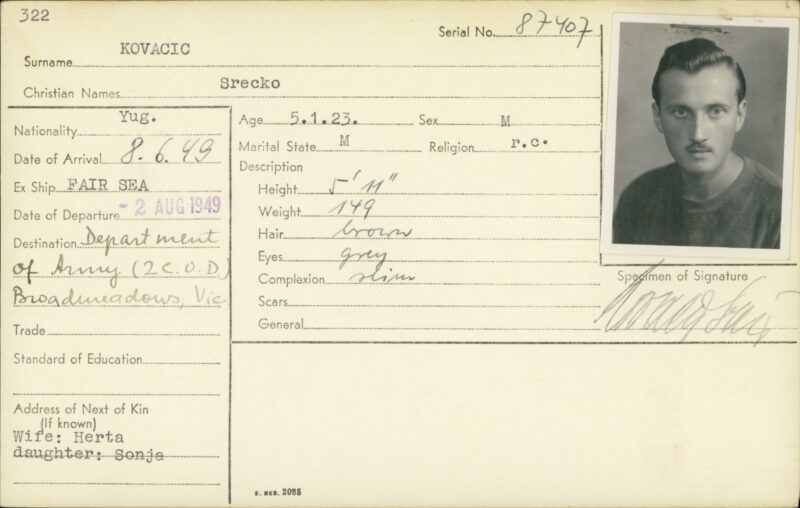 322
Serial No. 87407
KOVACIC
Surname
Christian Names Srecko
Yug.
Nationality
Date of Arrival 8. 6. 49
Ex Ship FAIR SEA
Date of Departure - 2 AUG 1949
Destination Department
of Army (2 C.O.D)
Broadmeadows, Vic
Trade
Standard of Education
Address of Next of Kin
(If known)
Wife: Herta
daughter: Sonja
Age 5.1.23. Sex M
Marital State M Religion r.c.
Description
Height 5' 11"
Weight 149
Hair brown
Eyes grey
Complexion slim
Scars
General
Specimen of Signature
2085